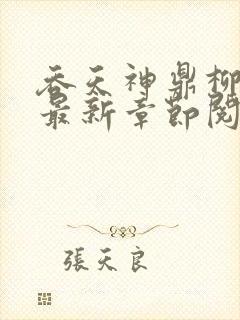 吞天神鼎柳
最新章節閱
張天良